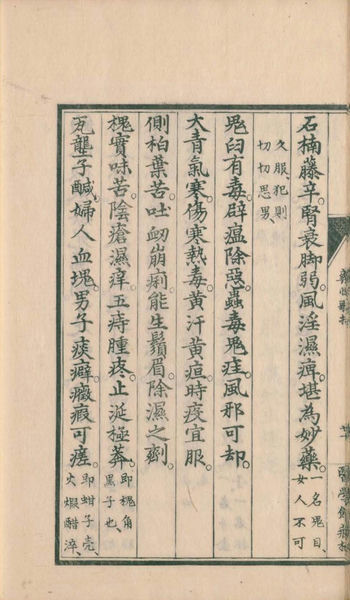 石楠藤辛腎衰脚弱風淫濕痺堪為妙藥一名鬼目女人不可
久服犯則切切思男
鬼臼有毒辟瘟除惡蟲毒鬼疰風邪可却
大青氣寒傷寒熱毒黃汗黃疸時疫宜服
側柏葉苦吐衂崩痢能生鬚眉除濕之劑
槐實味苦陰瘡濕痒五痔腫疼止涎極莽即槐角黑子也
瓦壟子鹹婦人血塊男子痰癖癥瘕可瘥即蚶子壳火煆醋淬